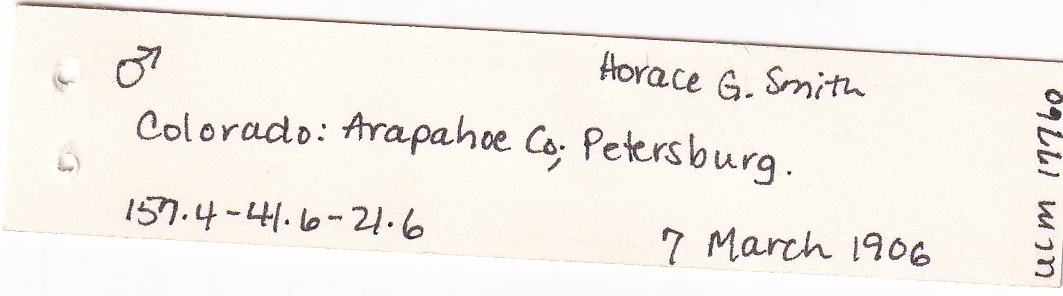 ♂ Horace G. Smith
Colorado: Arapahoe Co; Petersburg.
157.4-41.6-21.6
7 March 1906